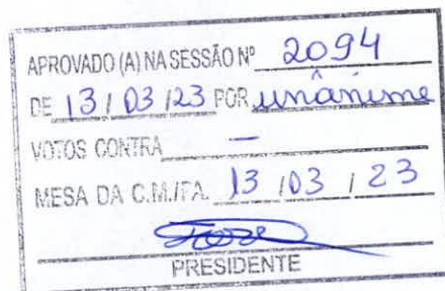 APROVADO (A) NA SESSÃO Nº 2094
DE 13 / 03 / 23 POR unânime
VOTOS CONTRA —
MESA DA C.M./P.A. 13 / 03 / 23
PRESIDENTE